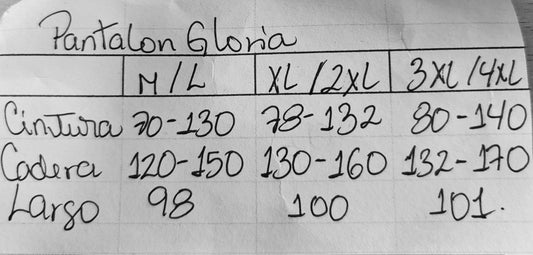 Pantalon Gloria
M/L XL/2XL 3XL/4XL
Cintura 70-130 78-132 80-140
Cadera 120-150 130-160 132-170
Largo 98 100 101.